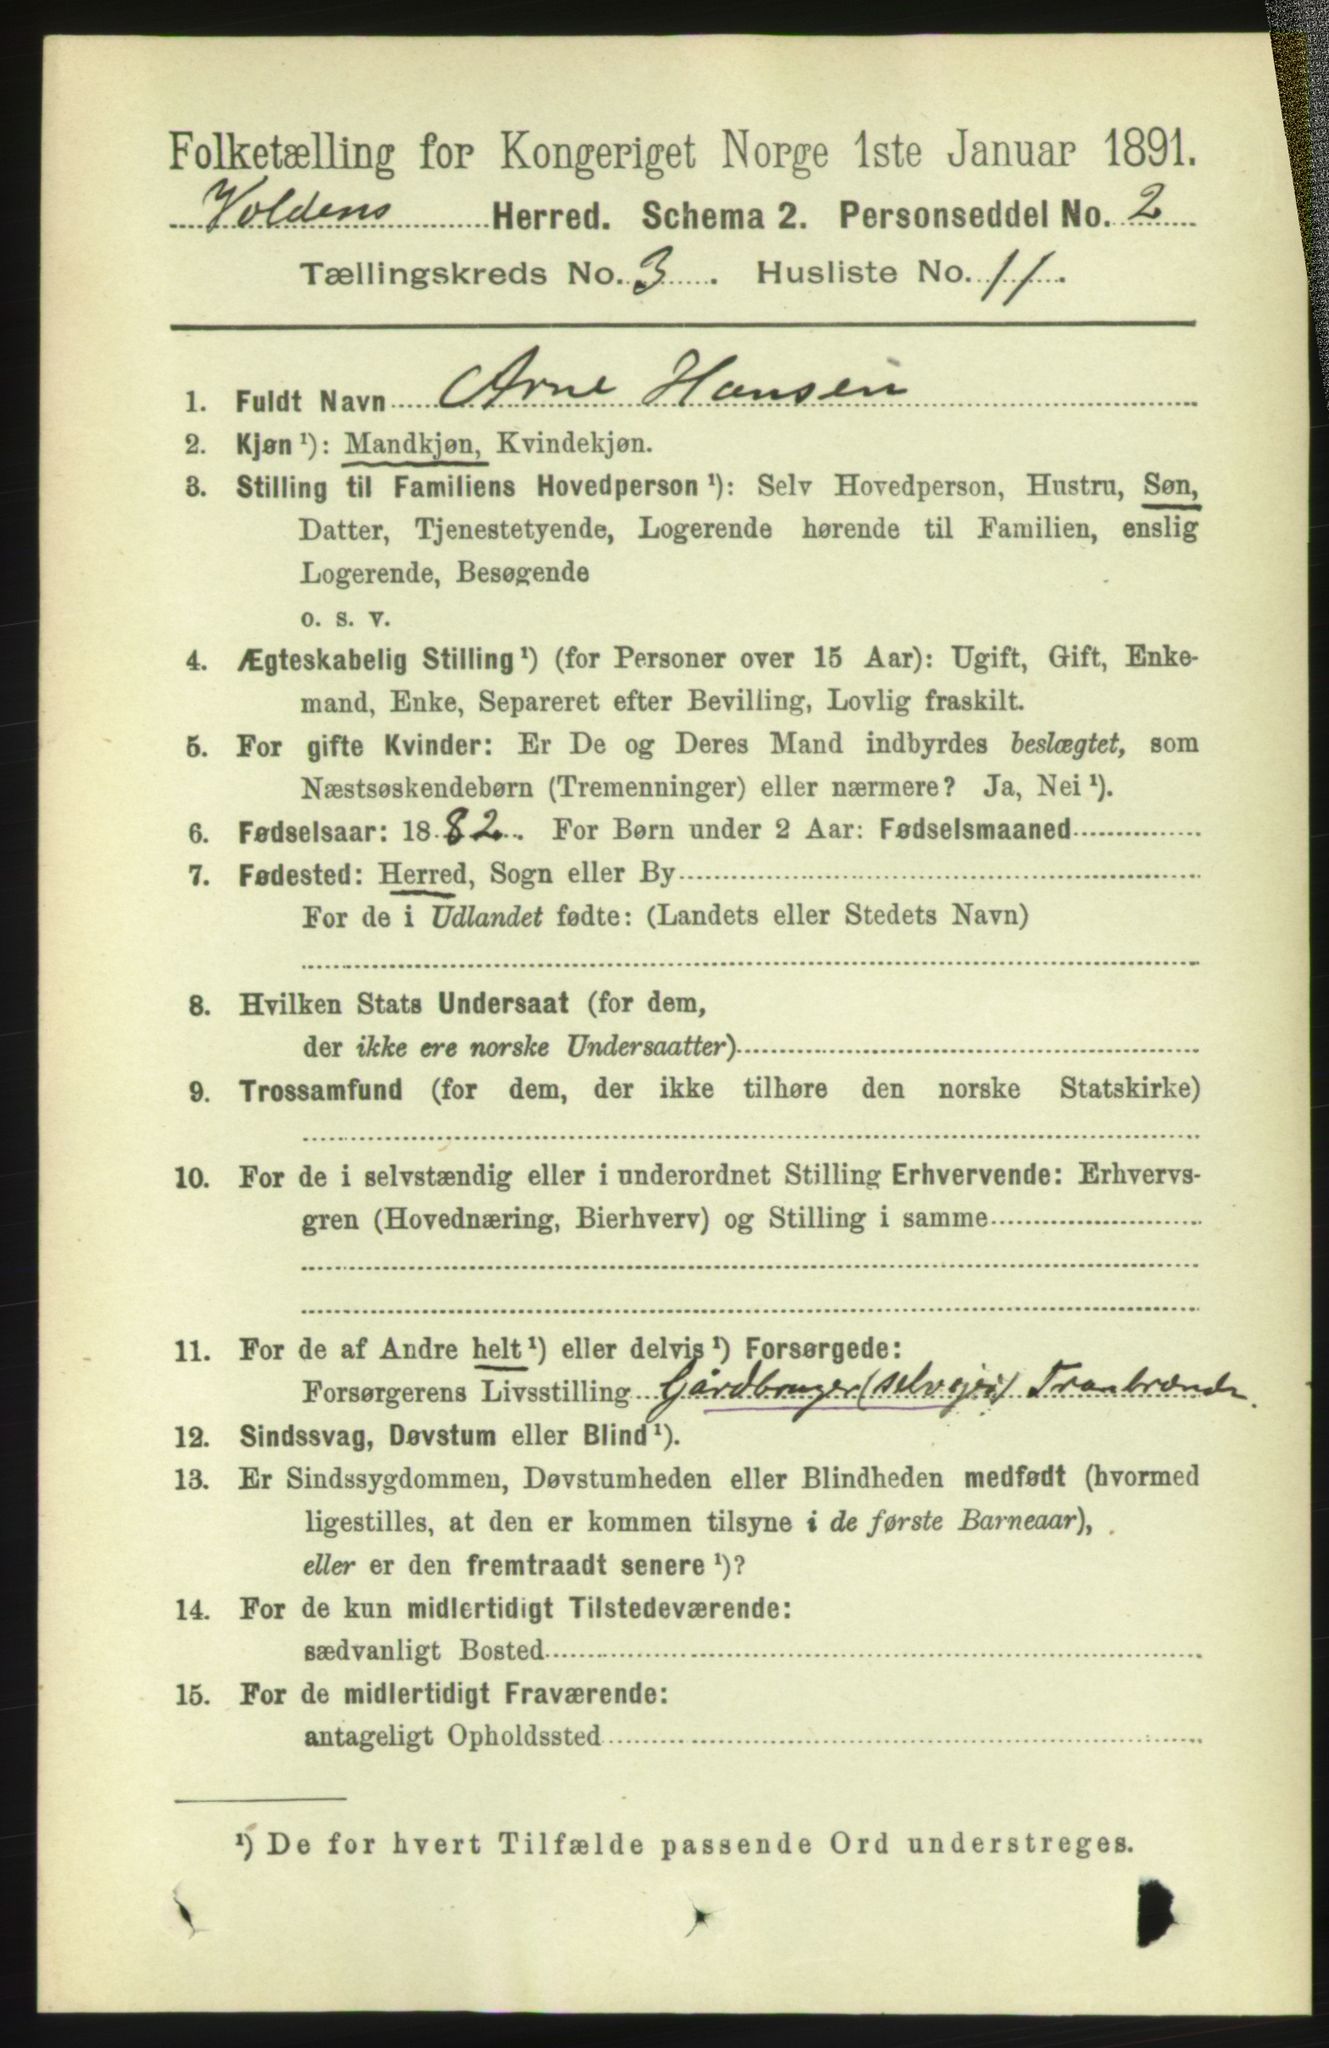 Folketælling for Kongeriget Norge 1ste Januar 1891.
Voldens Herred. Schema 2. Personseddel No. 2
Tællingskreds No. 3. Husliste No. 11.
1. Fuldt Navn Arne Hansen
2. Kjøn ¹): Mandkjøn, Kvindekjøn.
3. Stilling til Familiens Hovedperson ¹): Selv Hovedperson, Hustru, Søn,
Datter, Tjenestetyende, Logerende hørende til Familien, enslig
Logerende, Besøgende
o. s. v.
4. Ægteskabelig Stilling ¹) (for Personer over 15 Aar): Ugift, Gift, Enke-
mand, Enke, Separeret efter Bevilling, Lovlig fraskilt.
5. For gifte Kvinder: Er De og Deres Mand indbyrdes beslægtet, som
Næstsøskendebørn (Tremenninger) eller nærmere? Ja, Nei ¹).
6. Fødselsaar: 1882. For Børn under 2 Aar: Fødselsmaaned
7. Fødested: Herred, Sogn eller By
For de i Udlandet fødte: (Landets eller Stedets Navn)
8. Hvilken Stats Undersaat (for dem,
der ikke ere norske Undersaatter)
9. Trossamfund (for dem, der ikke tilhøre den norske Statskirke)
10. For de i selvstændig eller i underordnet Stilling Erhvervende: Erhvervs-
gren (Hovednæring, Bierhverv) og Stilling i samme
11. For de af Andre helt ¹) eller delvis ¹) Forsørgede:
Forsørgerens Livsstilling Gårdbruger (selvejer) Tranbrænder.
12. Sindssvag, Døvstum eller Blind ¹).
13. Er Sindssygdommen, Døvstumheden eller Blindheden medfødt (hvormed
ligestilles, at den er kommen tilsyne i de første Barneaar),
eller er den fremtraadt senere ¹)?
14. For de kun midlertidigt Tilstedeværende:
sædvanligt Bosted
15. For de midlertidigt Fraværende:
antageligt Opholdssted
¹) De for hvert Tilfælde passende Ord understreges.